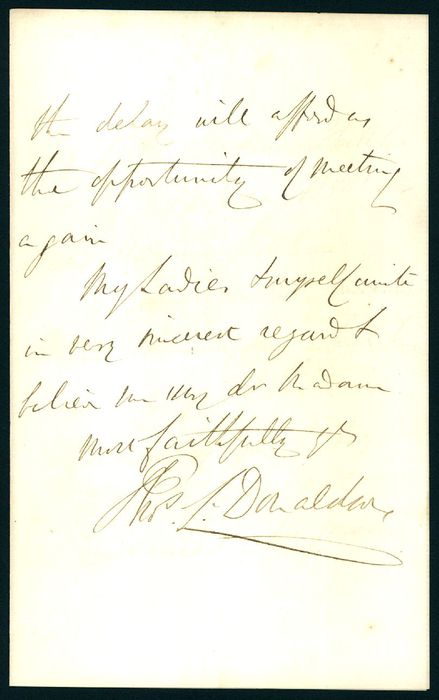 the delay will afford us
the opportunity of meeting
again
My Ladies & myself unite
in very sincerest regard &
believe me my dr Madam
most faithfully yrs
Thos. L. Donaldson